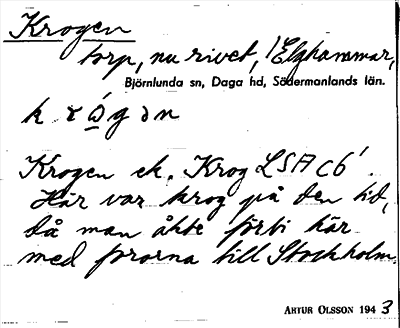 Krogen
torp, nu rivet, / Elghammar,
Björnlunda sn, Daga hd, Södermanlands län.
Krogen ek. Krog LSA C6.
Här var krog på den tid,
då man åkte förbi här
med fororna till Stockholm.
ARTUR OLSSON 1943